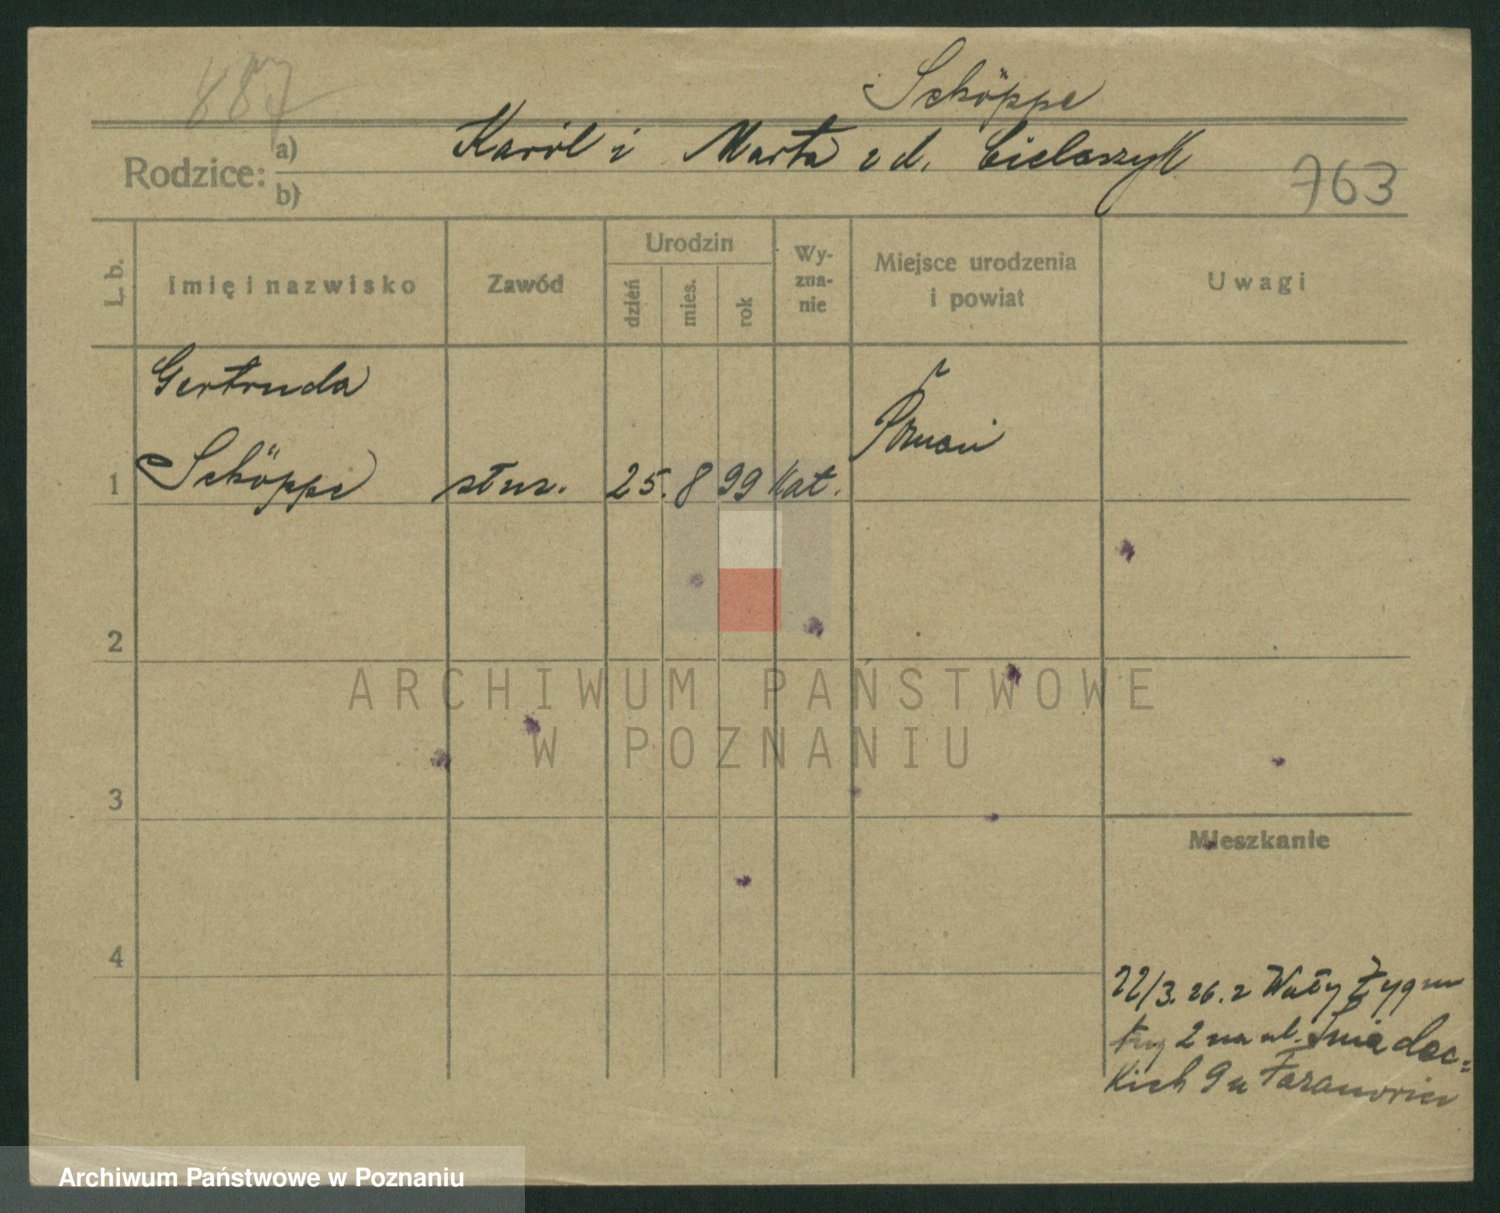 887
Schöppe
Karól i Marta z d. Cielaszyk
Rodzice: a)
b)
763
L. b.
Imię i nazwisko
Zawód
Urodzin
dzień
mies.
rok
Wy-
zna-
nie
Miejsce urodzenia
i powiat
Uwagi
Gertruda
1 Schöppe służ. 25. 8 99 kat. Poznań
2
ARCHIWUM PAŃSTWOWE
W POZNANIU
3
Mieszkanie
4
22/3. 26. z Wały Zygm
2 na ul. Śniadec-
kich 9 u
Archiwum Państwowe w Poznaniu